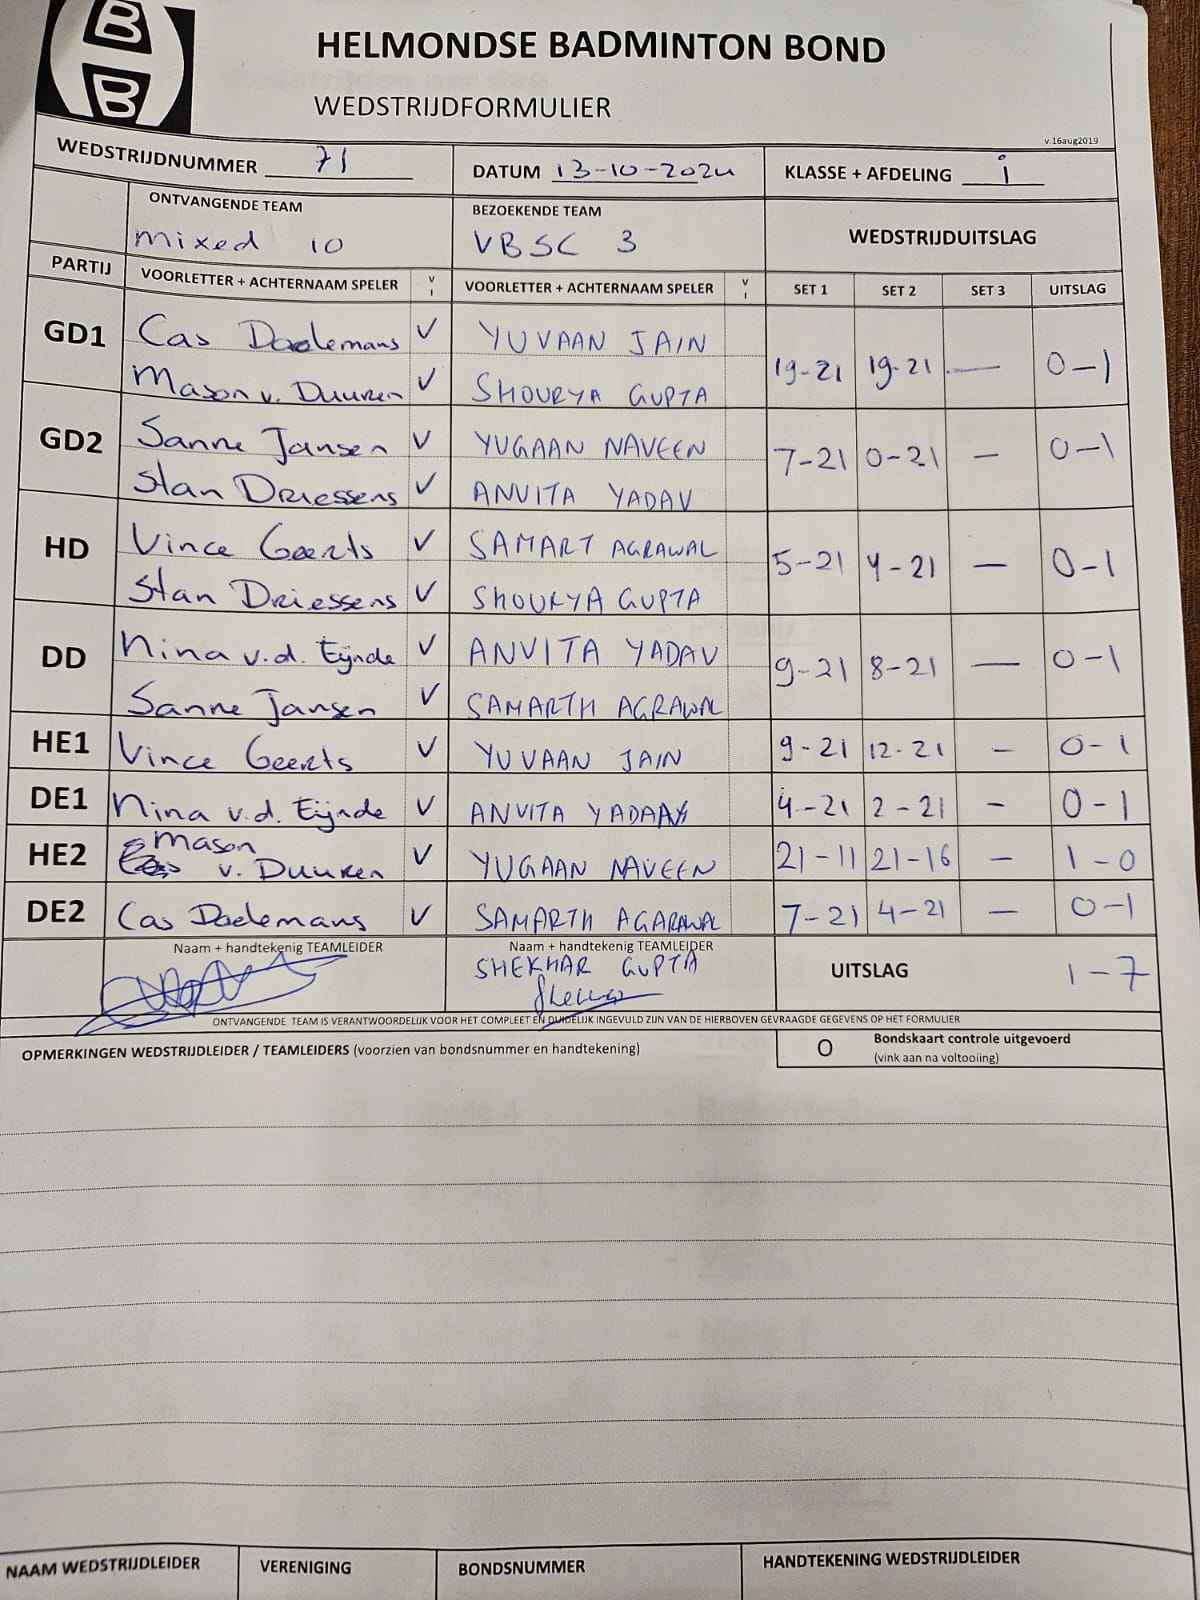 B
B
HELMONDSE BADMINTON BOND
WEDSTRIJDFORMULIER
v.16aug2019
WEDSTRIJDNUMMER 71 DATUM 13-10-2024 KLASSE + AFDELING i
ONTVANGENDE TEAM BEZOEKENDE TEAM WEDSTRIJDUITSLAG
mixed 10 VBSC 3
PARTIJ VOORLETTER + ACHTERNAAM SPELER V I VOORLETTER + ACHTERNAAM SPELER V I SET 1 SET 2 SET 3 UITSLAG
GD1 Cas Daelemans V YUVAAN JAIN 19-21 19-21 — 0-1
Mason v. Duuren V SHOURYA GUPTA
GD2 Sanne Jansen V YUGAAN NAVEEN 7-21 0-21 — 0-1
Stan Driessens V ANVITA YADAV
HD Vince Geerts V SAMART AGRAWAL 5-21 4-21 — 0-1
Stan Driessens V SHOURYA GUPTA
DD Nina v.d. Eijnde V ANVITA YADAV 9-21 8-21 — 0-1
Sanne Jansen V SAMARTH AGRAWAL
HE1 Vince Geerts V YUVAAN JAIN 9-21 12-21 — 0-1
DE1 Nina v.d. Eijnde V ANVITA 4-21 2-21 — 0-1
HE2 Mason v. Duuren V YUGAAN NAVEEN 21-11 21-16 — 1-0
DE2 Cas Daelemans V SAMARTH AGARAWAL 7-21 4-21 — 0-1
Naam + handtekenig TEAMLEIDER Naam + handtekenig TEAMLEIDER
SHEKHAR GUPTA UITSLAG 1-7
ONTVANGENDE TEAM IS VERANTWOORDELIJK VOOR HET COMPLEET EN DUIDELIJK INGEVULD ZIJN VAN DE HIERBOVEN GEVRAAGDE GEGEVENS OP HET FORMULIER
OPMERKINGEN WEDSTRIJDLEIDER / TEAMLEIDERS (voorzien van bondsnummer en handtekening) O Bondskaart controle uitgevoerd
(vink aan na voltooiing)
NAAM WEDSTRIJDLEIDER VERENIGING BONDSNUMMER HANDTEKENING WEDSTRIJDLEIDER